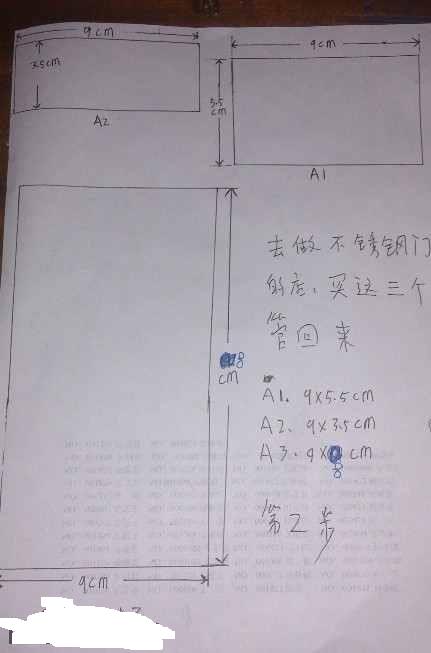 9cm
3.5cm
A2
9cm
5.5
cm
A1
去做不锈钢门
的店,买这三个
管回来
8
cm
A1. 9×5.5cm
A2. 9×3.5cm
A3. 9× cm
8
第2步
9cm